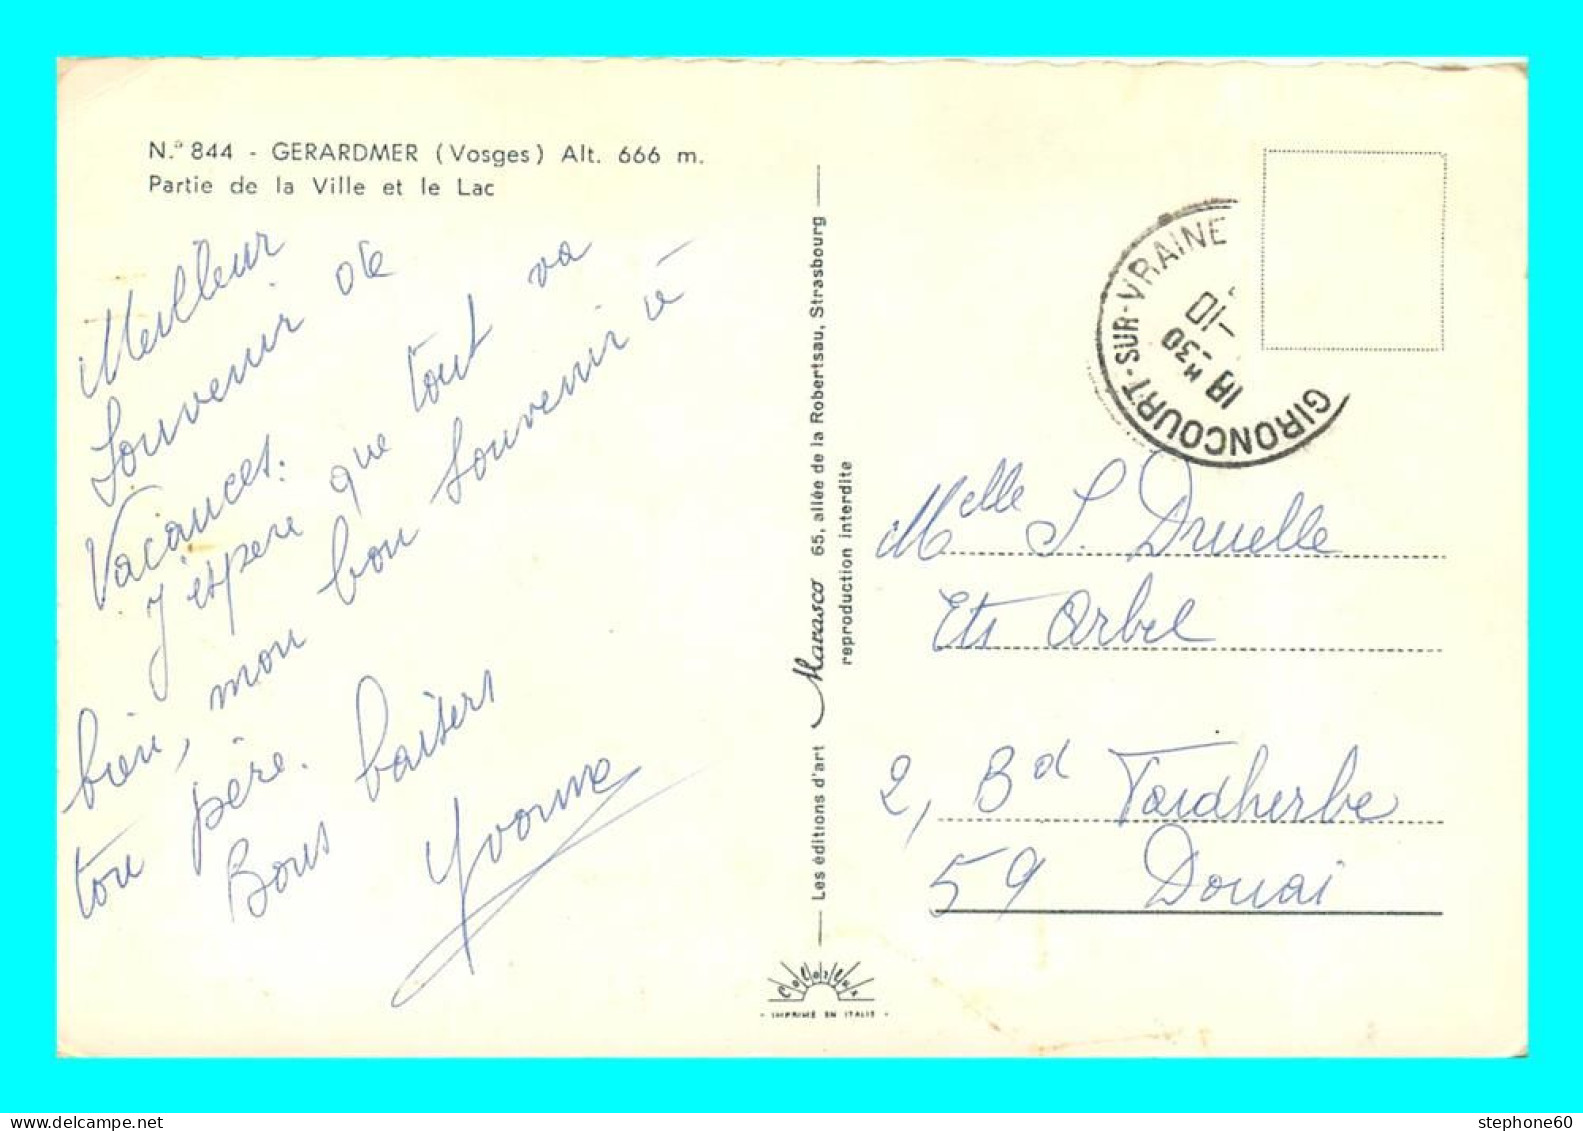 N.º 844 - GERARDMER (Vosges) Alt. 666 m.
Partie de la Ville et le Lac
Meilleur
Souvenir de
Vacances.
J'espere que tout va
bien, mon bon souvenir à
ton père.
Bons baisers
Yvonne
Les éditions d'art Marasco 65, allée de la Robertsau, Strasbourg
reproduction interdite
Colorlux
- IMPRIMÉ EN ITALIE -
GIRONCOURT-SUR-VRAINE
18 H 30
-10
Melle S. Druelle
Ets Arbel
2, Bd Faidherbe
59 Douai
stephone60